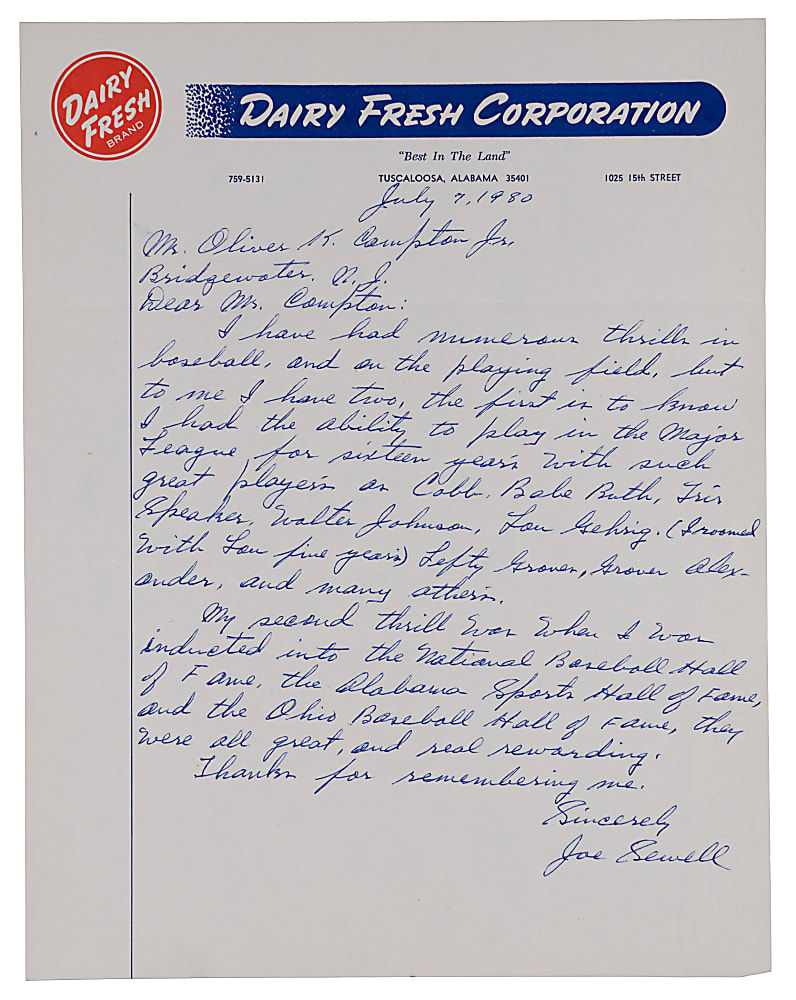 DAIRY
FRESH
BRAND
DAIRY FRESH CORPORATION
"Best In The Land"
759-5131 TUSCALOOSA, ALABAMA 35401 1025 15th STREET
July 7, 1980
Mr. Oliver K. Compton Jr.
Bridgewater, N. J.
Dear Mr. Compton:
I have had numerous thrills in
baseball, and on the playing field, but
to me I have two, the first is to know
I had the ability to play in the Major
League for sixteen years with such
great players as Cobb, Babe Ruth, Tris
Speaker, Walter Johnson, Lou Gehrig. (I roomed
with Lou five years) Lefty Groves, Grover Alex-
ander, and many others.
My second thrill was when I was
inducted into the National Baseball Hall
of Fame, the Alabama Sports Hall of Fame,
and the Ohio Baseball Hall of Fame, they
were all great, and real rewarding.
Thanks for remembering me.
Sincerely
Joe Sewell